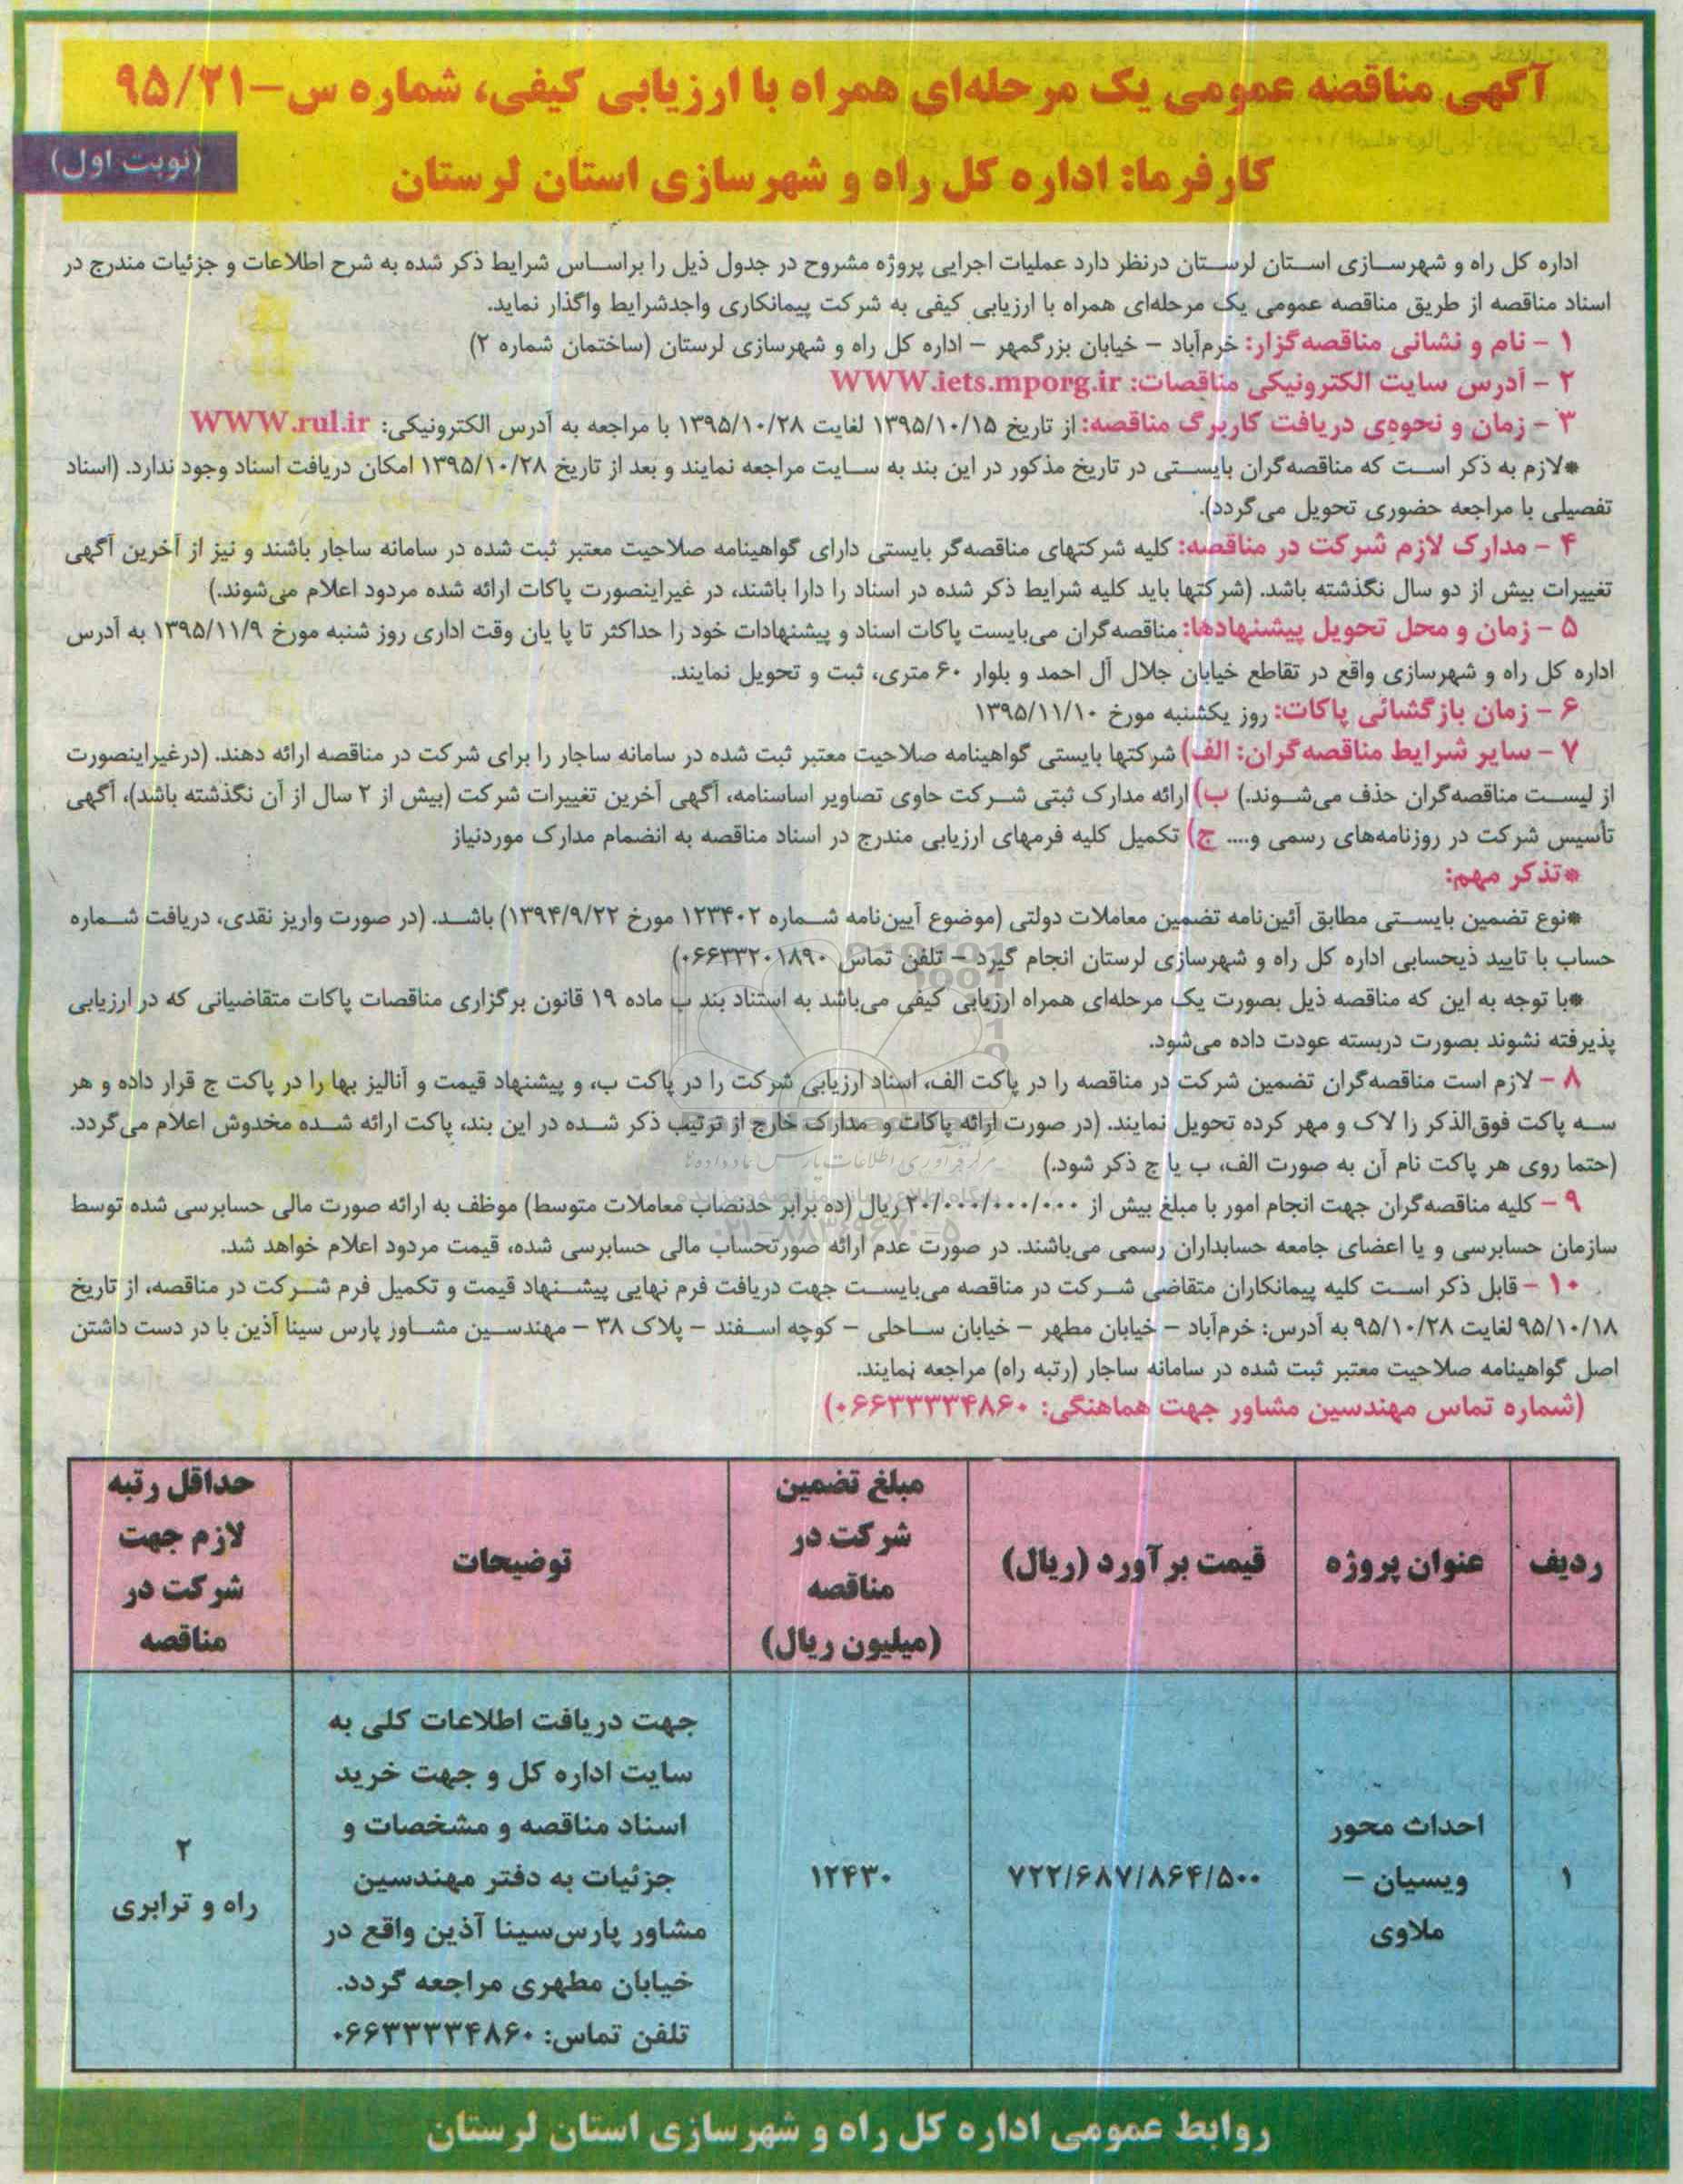 آگهی مناقصه عمومی یک مرحله‌ای همراه با ارزیابی کیفی، شماره س-۹۵/۲۱
کارفرما: اداره کل راه و شهرسازی استان لرستان
(نوبت اول)
اداره کل راه و شهرسازی استان لرستان درنظر دارد عملیات اجرایی پروژه مشروح در جدول ذیل را براساس شرایط ذکر شده به شرح اطلاعات و جزئیات مندرج در
اسناد مناقصه از طریق مناقصه عمومی یک مرحله‌ای همراه با ارزیابی کیفی به شرکت پیمانکاری واجدشرایط واگذار نماید.
۱ - نام و نشانی مناقصه‌گزار: خرم‌آباد - خیابان بزرگمهر - اداره کل راه و شهرسازی لرستان (ساختمان شماره ۲)
۲ - آدرس سایت الکترونیکی مناقصات: WWW.iets.mporg.ir
۳ - زمان و نحوه‌ی دریافت کاربرگ مناقصه: از تاریخ ۱۳۹۵/۱۰/۱۵ لغایت ۱۳۹۵/۱۰/۲۸ با مراجعه به آدرس الکترونیکی: WWW.rul.ir
*لازم به ذکر است که مناقصه‌گران بایستی در تاریخ مذکور در این بند به سایت مراجعه نمایند و بعد از تاریخ ۱۳۹۵/۱۰/۲۸ امکان دریافت اسناد وجود ندارد. (اسناد
تفصیلی با مراجعه حضوری تحویل می‌گردد).
۴ - مدارک لازم شرکت در مناقصه: کلیه شرکتهای مناقصه‌گر بایستی دارای گواهینامه صلاحیت معتبر ثبت شده در سامانه ساجار باشند و نیز از آخرین آگهی
تغییرات بیش از دو سال نگذشته باشد. (شرکتها باید کلیه شرایط ذکر شده در اسناد را دارا باشند، در غیراینصورت پاکات ارائه شده مردود اعلام می‌شوند.)
۵ - زمان و محل تحویل پیشنهادها: مناقصه‌گران می‌بایست پاکات اسناد و پیشنهادات خود را حداکثر تا پا یان وقت اداری روز شنبه مورخ ۱۳۹۵/۱۱/۹ به آدرس
اداره کل راه و شهرسازی واقع در تقاطع خیابان جلال آل احمد و بلوار ۶۰ متری، ثبت و تحویل نمایند.
۶ - زمان بازگشائی پاکات: روز یکشنبه مورخ ۱۳۹۵/۱۱/۱۰
۷ - سایر شرایط مناقصه‌گران: الف) شرکتها بایستی گواهینامه صلاحیت معتبر ثبت شده در سامانه ساجار را برای شرکت در مناقصه ارائه دهند. (درغیراینصورت
از لیست مناقصه‌گران حذف می‌شوند.) ب) ارائه مدارک ثبتی شرکت حاوی تصاویر اساسنامه، آگهی آخرین تغییرات شرکت (بیش از ۲ سال از آن نگذشته باشد)، آگهی
تأسیس شرکت در روزنامه‌های رسمی و.... ج) تکمیل کلیه فرمهای ارزیابی مندرج در اسناد مناقصه به انضمام مدارک موردنیاز
*تذکر مهم:
*نوع تضمین بایستی مطابق آئین‌نامه تضمین معاملات دولتی (موضوع آیین‌نامه شماره ۱۲۳۴۰۲ مورخ ۱۳۹۴/۹/۲۲) باشد. (در صورت واریز نقدی، دریافت شماره
حساب با تایید ذیحسابی اداره کل راه و شهرسازی لرستان انجام گیرد - تلفن تماس ۰۶۶۳۳۲۰۱۸۹۰)
*با توجه به این که مناقصه ذیل بصورت یک مرحله‌ای همراه ارزیابی کیفی می‌باشد به استناد بند ب ماده ۱۹ قانون برگزاری مناقصات پاکات متقاضیانی که در ارزیابی
پذیرفته نشوند بصورت دربسته عودت داده می‌شود.
۸ - لازم است مناقصه‌گران تضمین شرکت در مناقصه را در پاکت الف، اسناد ارزیابی شرکت را در پاکت ب، و پیشنهاد قیمت و آنالیز بها را در پاکت ج قرار داده و هر
سه پاکت فوق‌الذکر را لاک و مهر کرده تحویل نمایند. (در صورت ارائه پاکات و مدارک خارج از ترتیب ذکر شده در این بند، پاکت ارائه شده مخدوش اعلام می‌گردد.
(حتما روی هر پاکت نام آن به صورت الف، ب یا ج ذکر شود.)
۹ - کلیه مناقصه‌گران جهت انجام امور با مبلغ بیش از ۲۰/۰۰۰/۰۰۰/۰۰۰ ریال (ده برابر حدنصاب معاملات متوسط) موظف به ارائه صورت مالی حسابرسی شده توسط
سازمان حسابرسی و یا اعضای جامعه حسابداران رسمی می‌باشند. در صورت عدم ارائه صورتحساب مالی حسابرسی شده، قیمت مردود اعلام خواهد شد.
۱۰ - قابل ذکر است کلیه پیمانکاران متقاضی شرکت در مناقصه می‌بایست جهت دریافت فرم نهایی پیشنهاد قیمت و تکمیل فرم شرکت در مناقصه، از تاریخ
۹۵/۱۰/۱۸ لغایت ۹۵/۱۰/۲۸ به آدرس: خرم‌آباد - خیابان مطهر - خیابان ساحلی - کوچه اسفند - پلاک ۳۸ - مهندسین مشاور پارس سینا آذین با در دست داشتن
اصل گواهینامه صلاحیت معتبر ثبت شده در سامانه ساجار (رتبه راه) مراجعه نمایند.
(شماره تماس مهندسین مشاور جهت هماهنگی: ۰۶۶۳۳۳۳۴۸۶۰)
ردیف
عنوان پروژه
قیمت برآورد (ریال)
مبلغ تضمین
شرکت در
مناقصه
(میلیون ریال)
توضیحات
حداقل رتبه
لازم جهت
شرکت در
مناقصه
۱
احداث محور
ویسیان -
ملاوی
۷۲۲/۶۸۷/۸۶۴/۵۰۰
۱۲۴۳۰
جهت دریافت اطلاعات کلی به
سایت اداره کل و جهت خرید
اسناد مناقصه و مشخصات و
جزئیات به دفتر مهندسین
مشاور پارس‌سینا آذین واقع در
خیابان مطهری مراجعه گردد.
تلفن تماس: ۰۶۶۳۳۳۳۴۸۶۰
۲
راه و ترابری
روابط عمومی اداره کل راه و شهرسازی استان لرستان